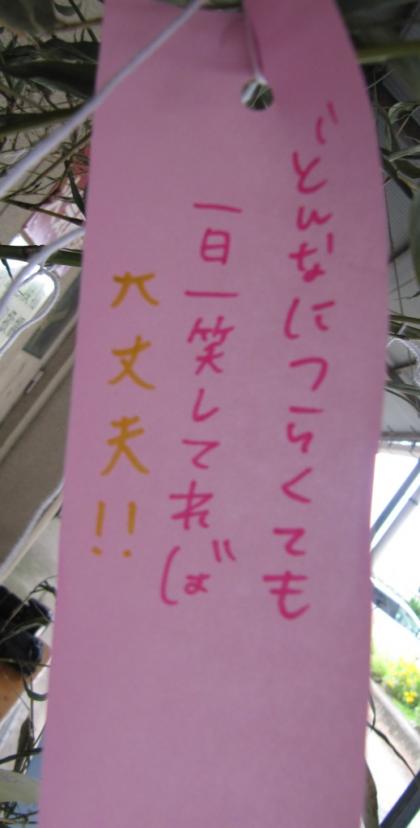 どんなにつらくても
一日一笑してれば
大丈夫!!